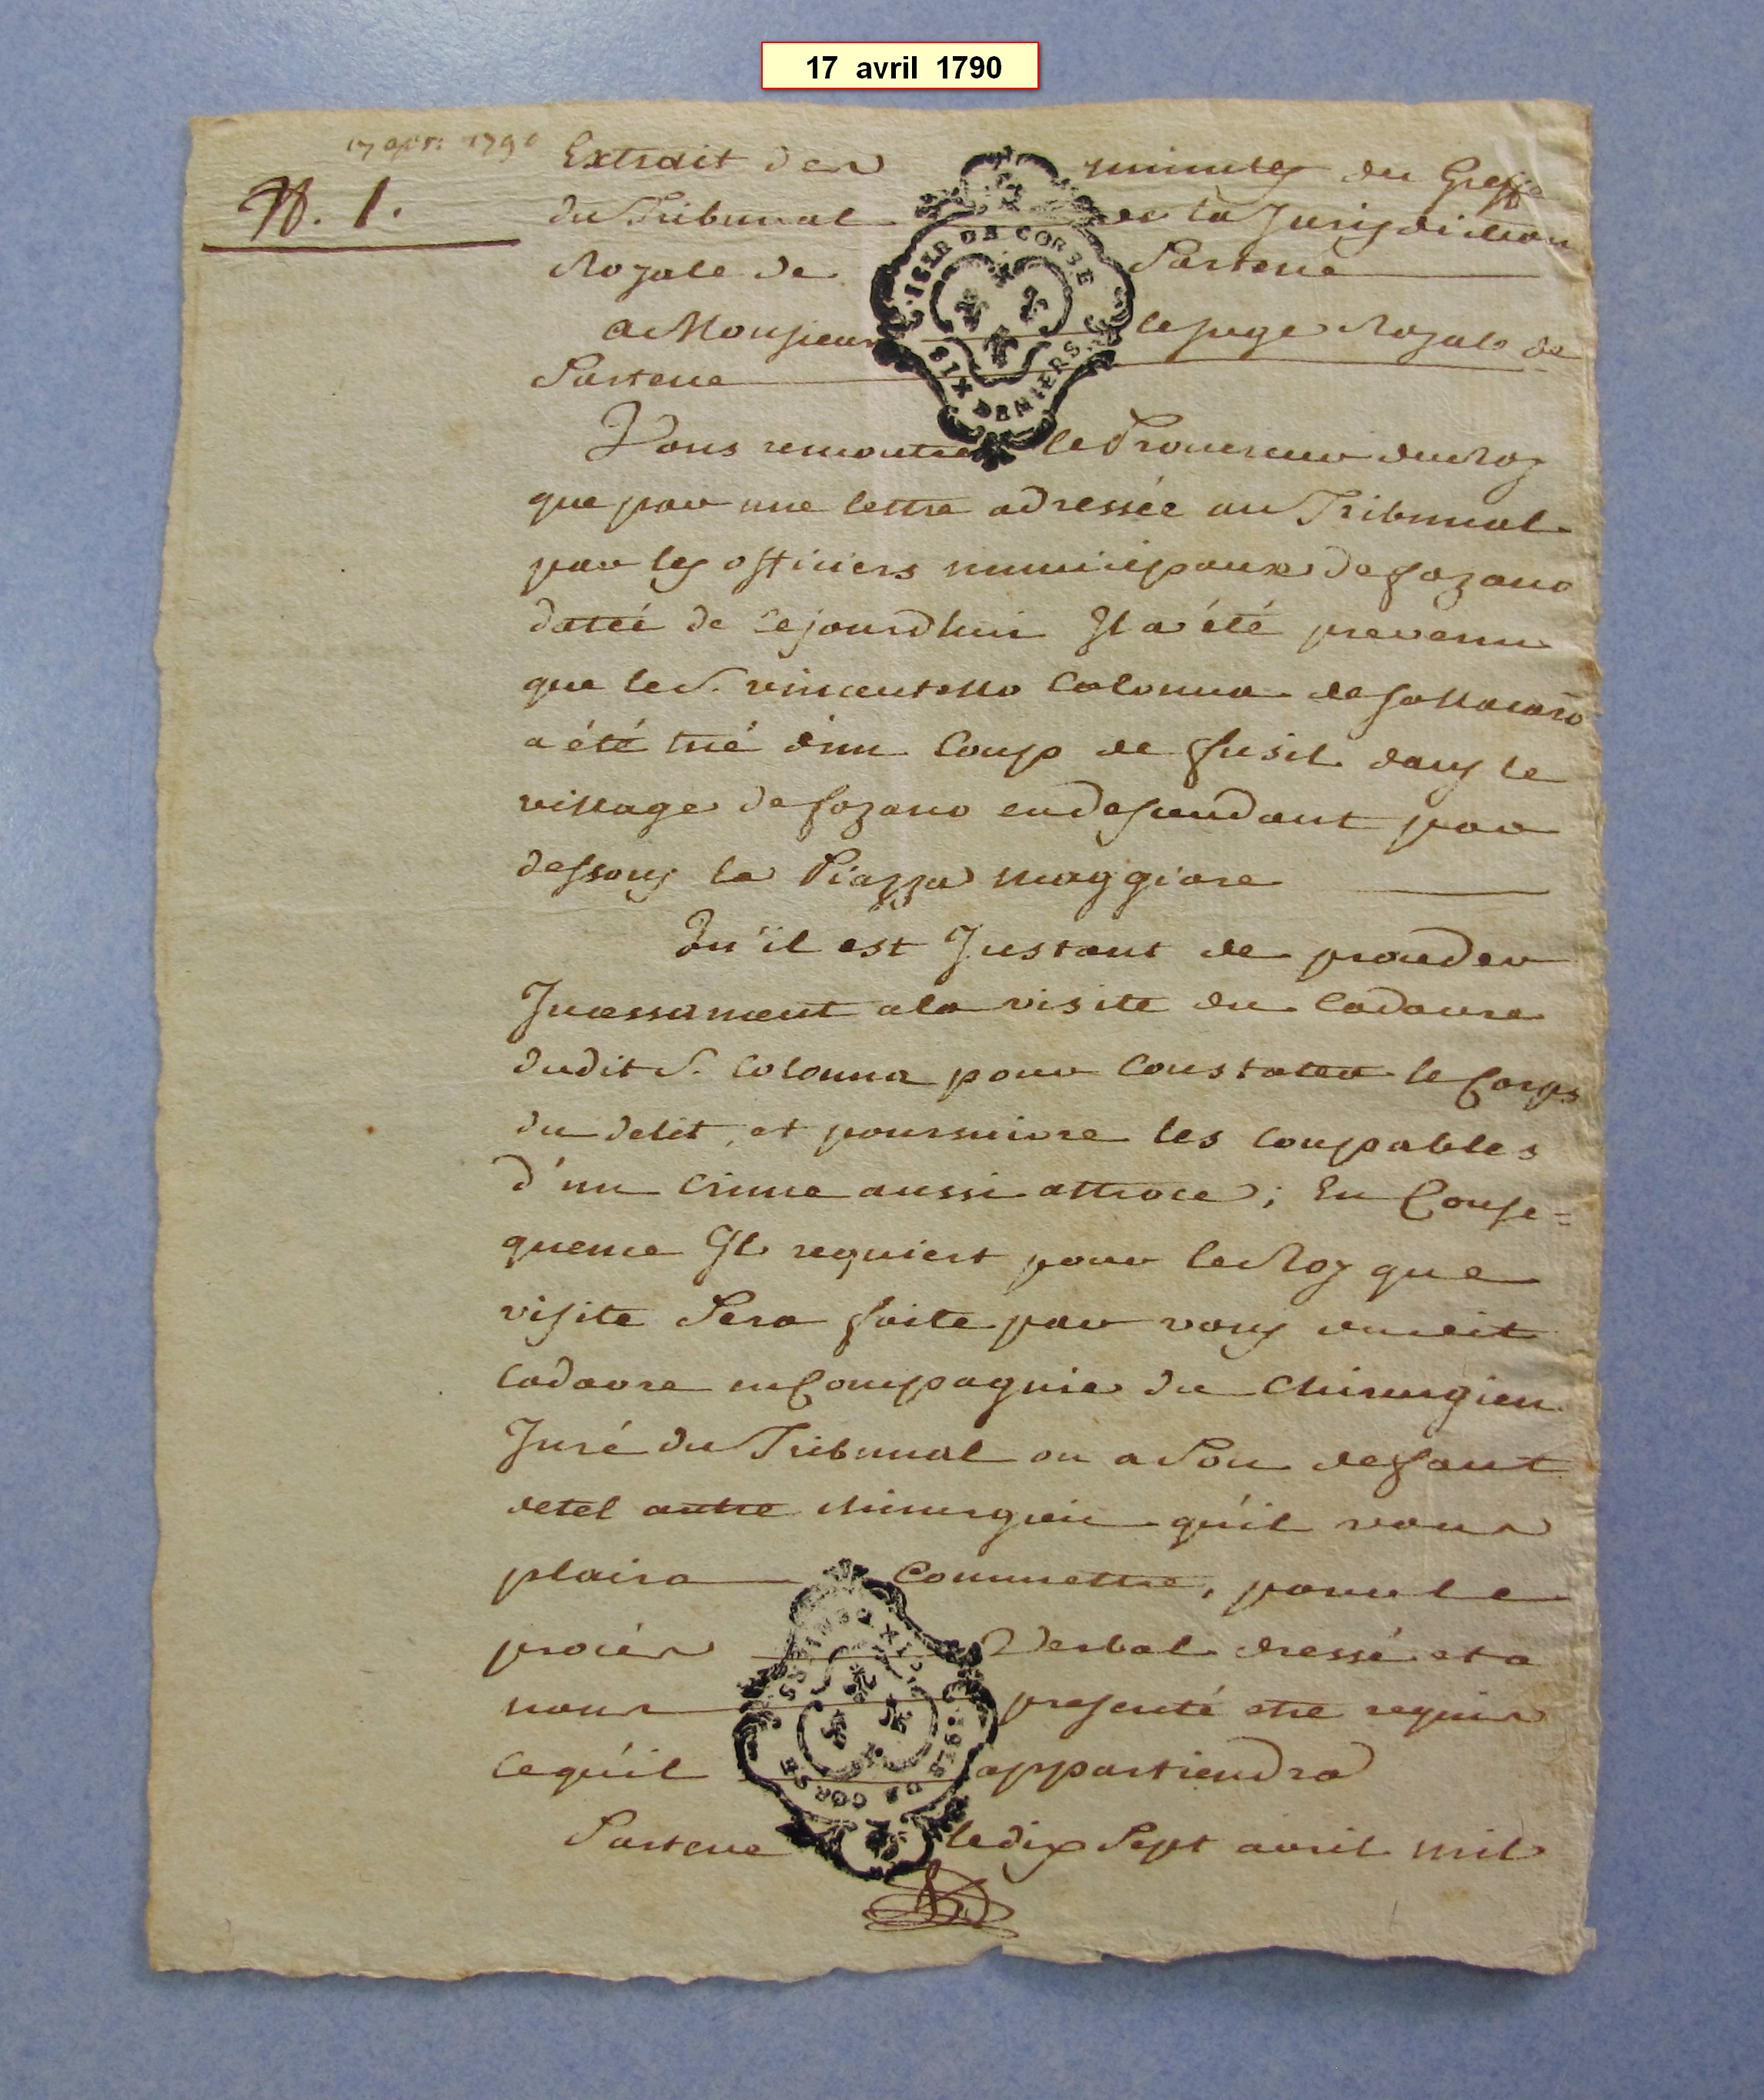 17 avril 1790
17 apr: 1790
N. 1.
Extrait des minutes du Greffe
du Tribunal de la Jurisdiction
Royale de Sartene
ISLE DE CORSE
SIX DENIERS
a Monsieur le juge Royale de
Sartene
Vous remontre le Procureur du Roy
que par une lettre adressée au Tribunal
par les officiers municipaux de fozano
datée de Cejourdhui Il a été prevenu
que le S. vincentello Colonna de sollacaro
a été tué d'un Coup de fusil dans le
village de fozano en descendant par
dessous la Piazza maggiore
Qu'il est Instant de proceder
Incessament a la visite du Cadavre
dudit S. Colonna pour Constater le Corps
du delit, et poursuivre les Coupables
d'un Crime aussi attroce; En Conse=
quence Il requiert pour le Roy que
visite Sera faite par vous dudit
Cadavre en Compagnie du Chirurgien
Juré du Tribunal ou a Son deffaut
de tel autre chirurgien qu'il vous
plaira Commettre, pour le
procès Verbal dressé et a
nous presenté etre requis
ce qu'il appartiendra
SIX DENIERS
ISLE DE CORSE
Sartene le dix Sept avril mil